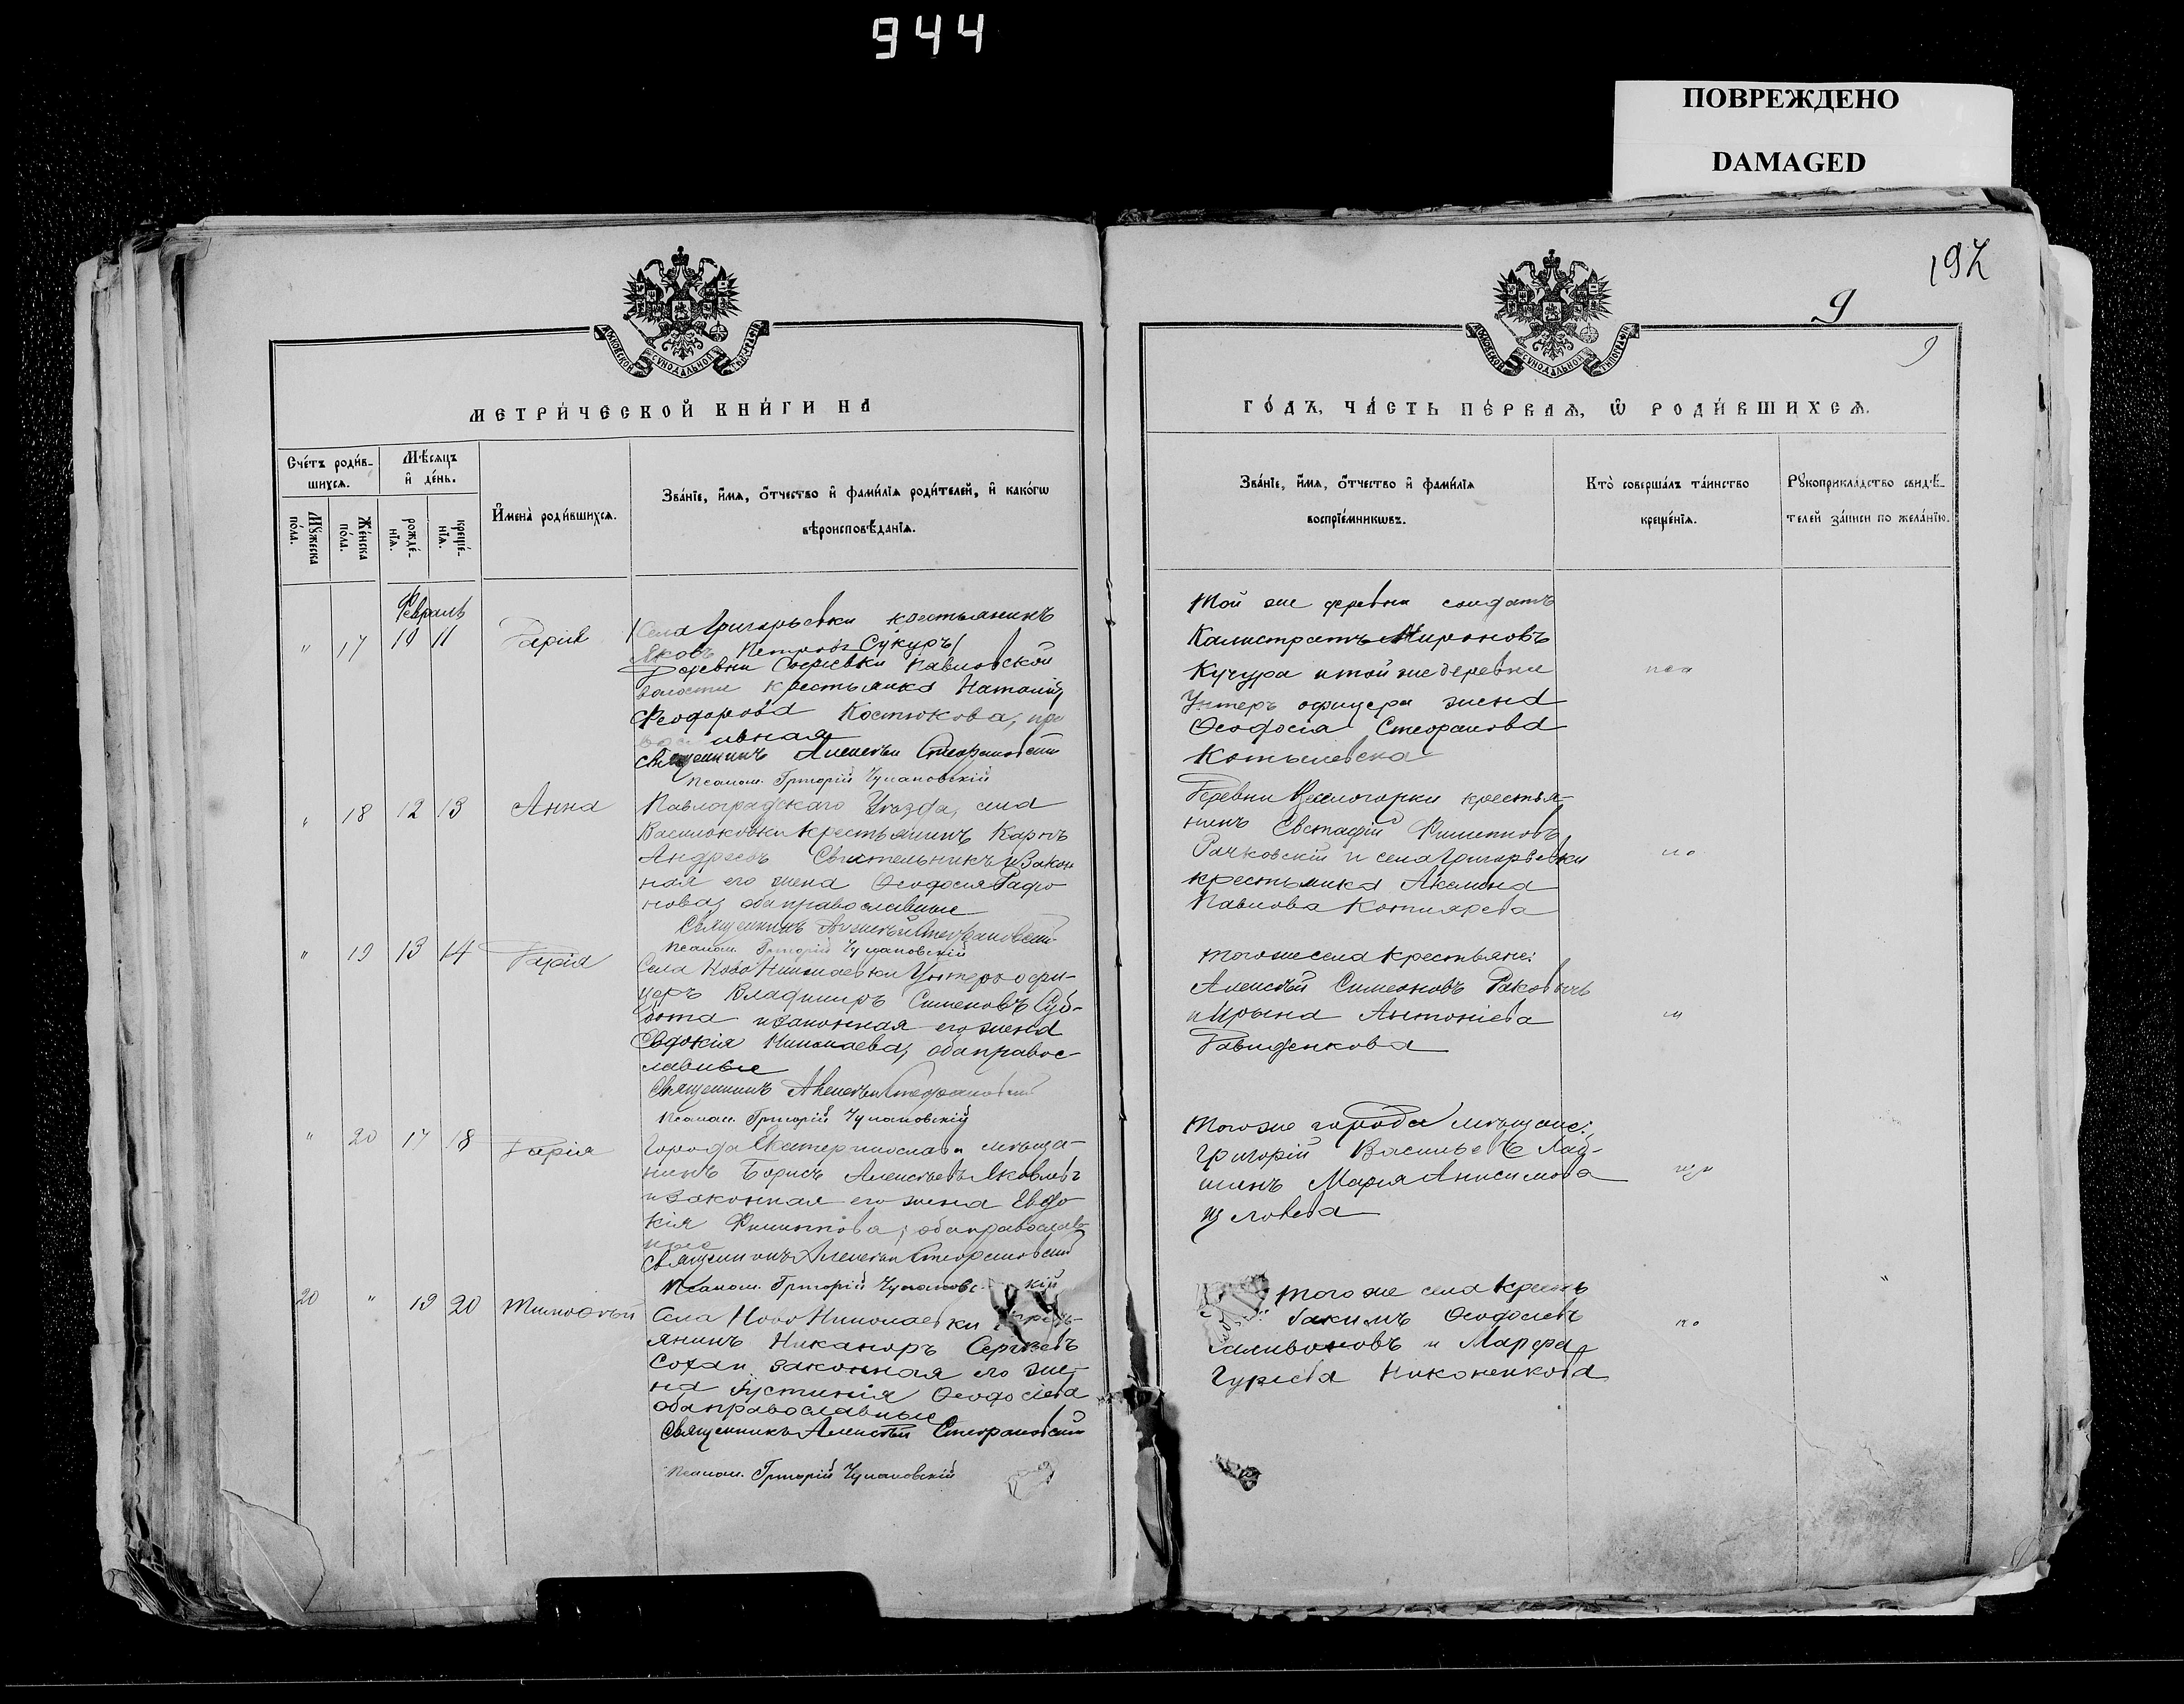 944
ПОВРЕЖДЕНО
DAMAGED
192
9
9
МОСКОВСКОЙ СѴНОДАЛЬНОЙ ТИПОГРАФІИ
МОСКОВСКОЙ СѴНОДАЛЬНОЙ ТИПОГРАФІИ
МЕТРИ́ЧЕСКОЙ КНИ́ГИ НА
ГО́ДЪ, ЧА́СТЬ ПЕ́РВАѦ, Ѡ҆ РОДИ́ВШИХСѦ.
Сче́тъ роди́в-
шихсѧ.
Мѣ́сѧцъ
и҆ де́нь.
Мꙋ́жеска по́ла.
Же́нска по́ла.
рожде́-
нїѧ.
креще́-
нїѧ.
И҆мена̀ роди́вшихсѧ.
Зва́нїе, и҆́мѧ, ѻ҆́тчество и҆ фами́лїѧ роди́телей, и҆ како́гѡ
вѣроисповѣ́данїѧ.
Зва́нїе, и҆́мѧ, ѻ҆́тчество и҆ фами́лїѧ
воспрїе́мникѡвъ.
Кто̀ соверша́лъ та́инство
креще́нїѧ.
Рꙋкоприкла́дство свидѣ́-
телей за́писи по жела́нїю.
Февраль
" 17 10 11
Села Григорьевки крестьянинъ
Яковъ Петровъ Сукуръ
Деревни Сергѣевки Павловской
волости крестьянка Наталія
Феодорова Костюкова, пра
вославная
Священникъ Алексѣй Стефановскій
Псалом. Григорій Чулановскій
Той же деревни солдатъ
Калистратъ Мироновъ
Кучура и той же деревни
Унтеръ офицера жена
Ѳеодосія Стефанова
" 18 12 13 Анна
Павлоградскаго Уѣзда, села
Васильковки крестьянинъ Карпъ
Андреевъ Свительникъ и закон
ная его жена Ѳеодосія
обаправославные
Священникъ Алексѣй Стефановскій
Псалом. Григорій Чулановскій
Деревни Веселогорки крестья-
нинъ Евстафій Филипповъ
Рачковскій и села Григорьевки
крестьянка Акелина
Павлова Котлярева
" 19 13 14 Дарія
Села Ново Николаевки Унтеръ офи-
церъ Владимиръ Симеоновъ Суб-
бота и законная его жена
Евдокія Николаева, обаправос-
лавные
Священникъ Алексѣй Стефановскій
Псалом. Григорій Чулановскій
того же села крестьяне:
Алексѣй Симеоновъ
и Ирына Антоніева
Давиденкова
" 20 17 18 Дарія
Города Екатеринослава мѣща-
нинъ Борисъ Алексѣевъ Яковлевъ
и законная его жена Евдо
кія Филиппова, обаправослав
ные
Священникъ Алексѣй Стефановскій
Псалом. Григорій Чулановскій
Того же города мѣщане:
Григорій Васильевъ
Марія Анисимова
20 " 19 20 Тимоѳей
Села Ново Николаевки
янинъ Никаноръ Сергѣевъ
Сохан законная его же-
на Іустинія Ѳеодосіева
обаправославные
Священникъ Алексѣй Стефановскій
Псалом. Григорій Чулановскій
того же села кресть
Іакимъ Ѳеодосіевъ
и Марфа
Гуріева Никоненкова